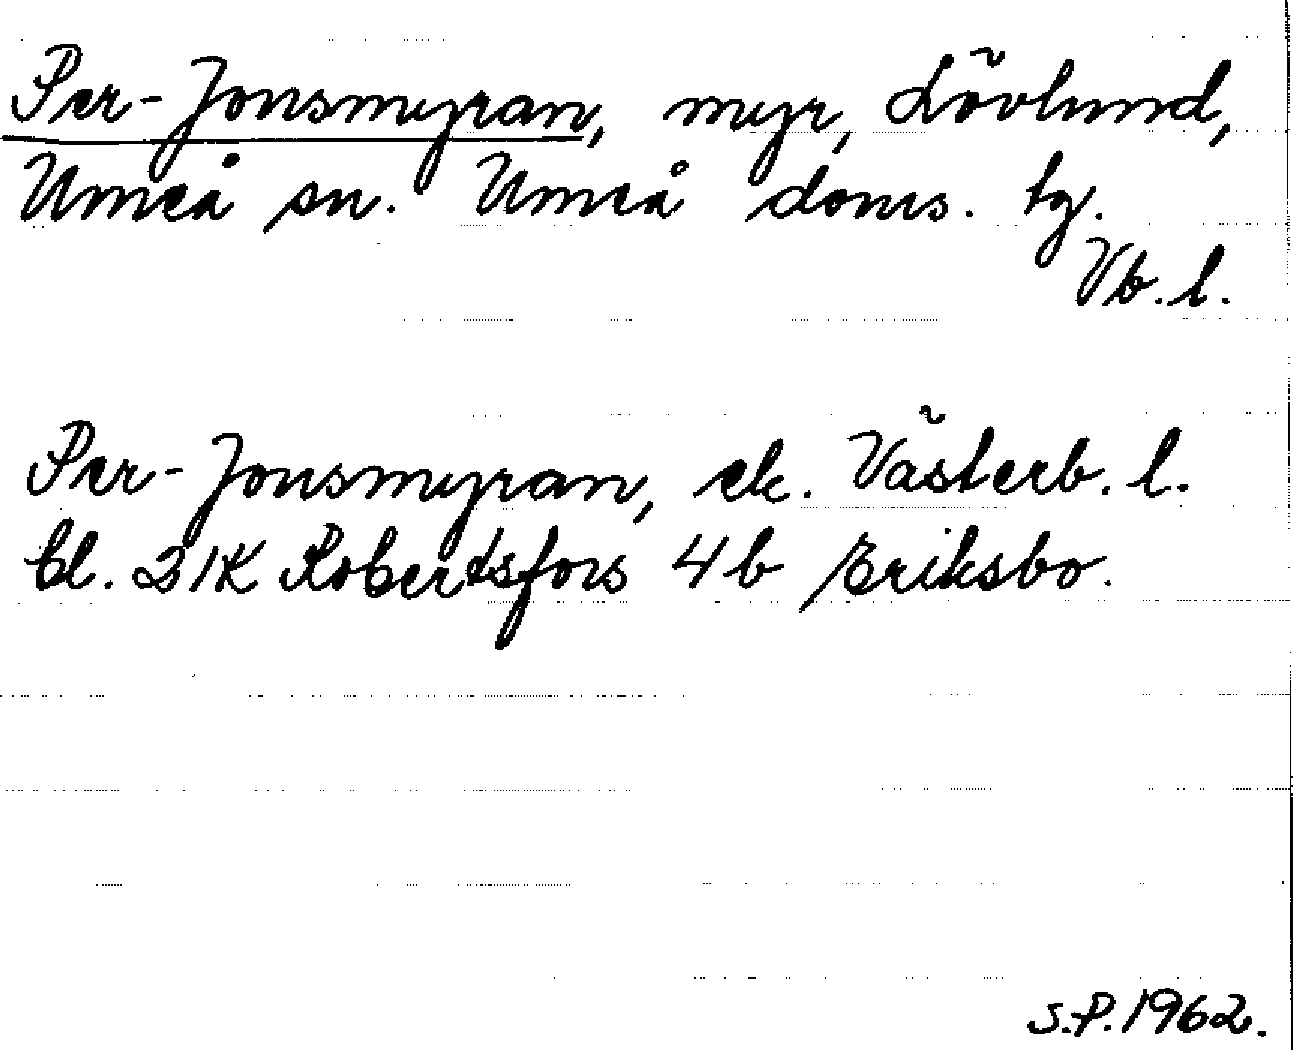 Per-Jonsmyran, myr, Lövlund,
Umeå sn. Umeå doms. tg.
Vb. l.
Per-Jonsmyran, ek. Västerb. l.
bl. 21K Robertsfors 4b Eriksbo.
S.P. 1962.